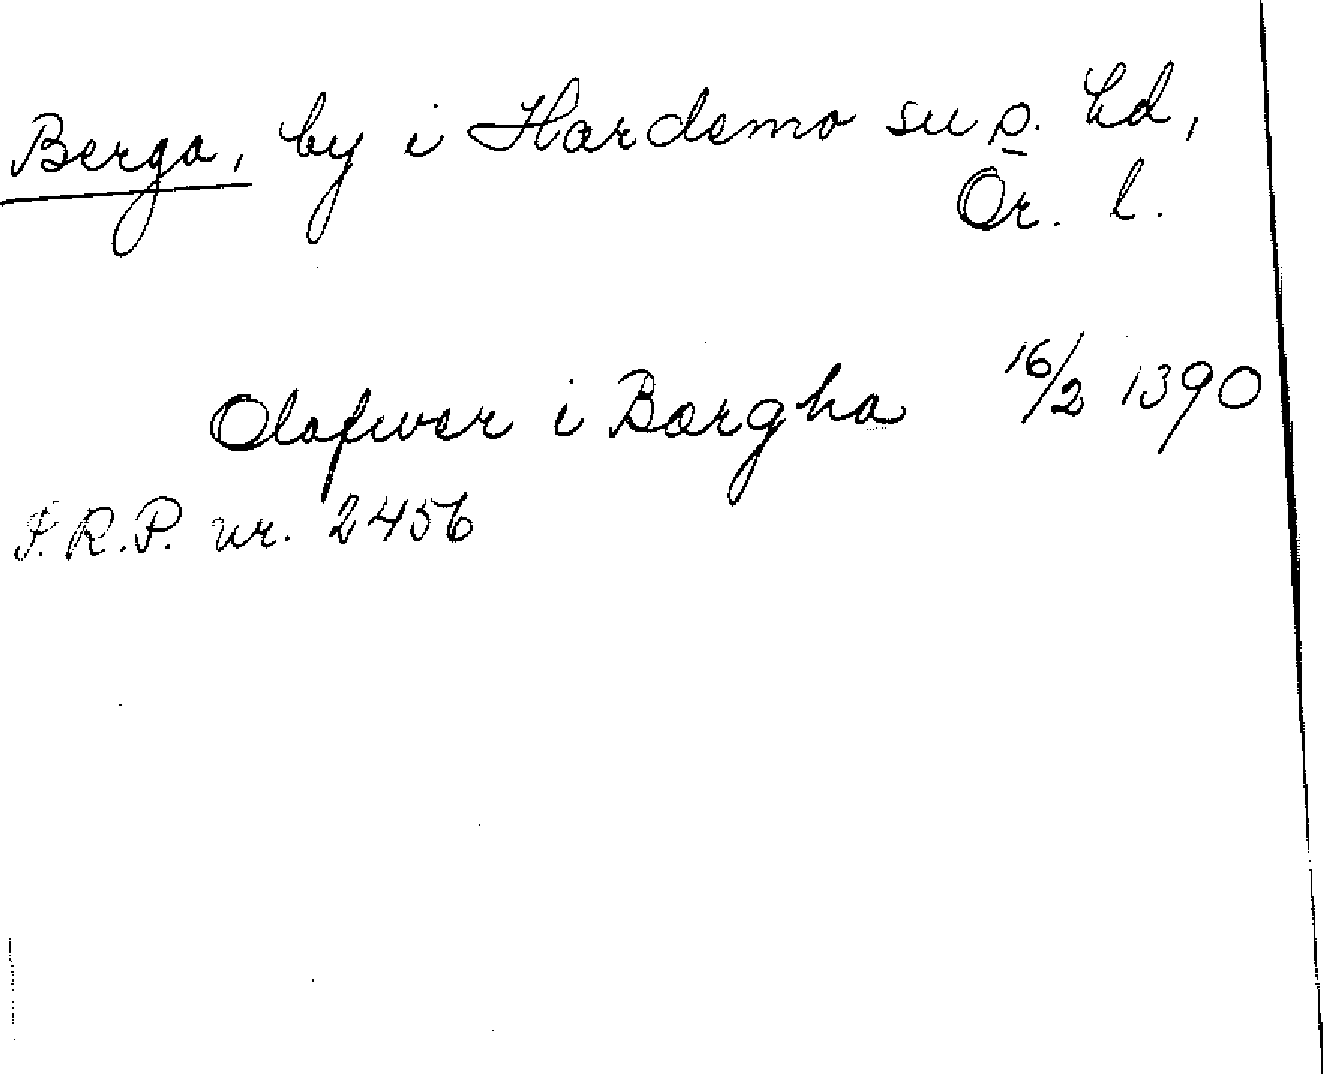 Berga, by i Hardemo sn o. hd,
Ör. l.
Olafwer i Bærgha 16/2 1390
S.R.P. nr. 2456